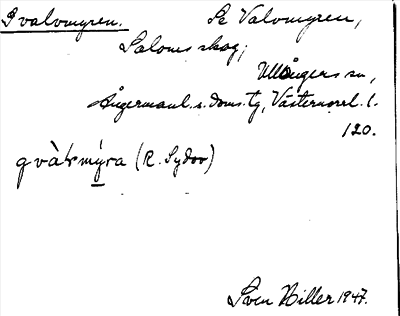 Gvalvmyren. Se Valvmyren,
Saloms skog;
Ullångers sn,
Ångermanl. s. doms. tg, Västernorrl. l.
120.
gvàrmýra (R. Sydov)
Sven Hiller 1947.